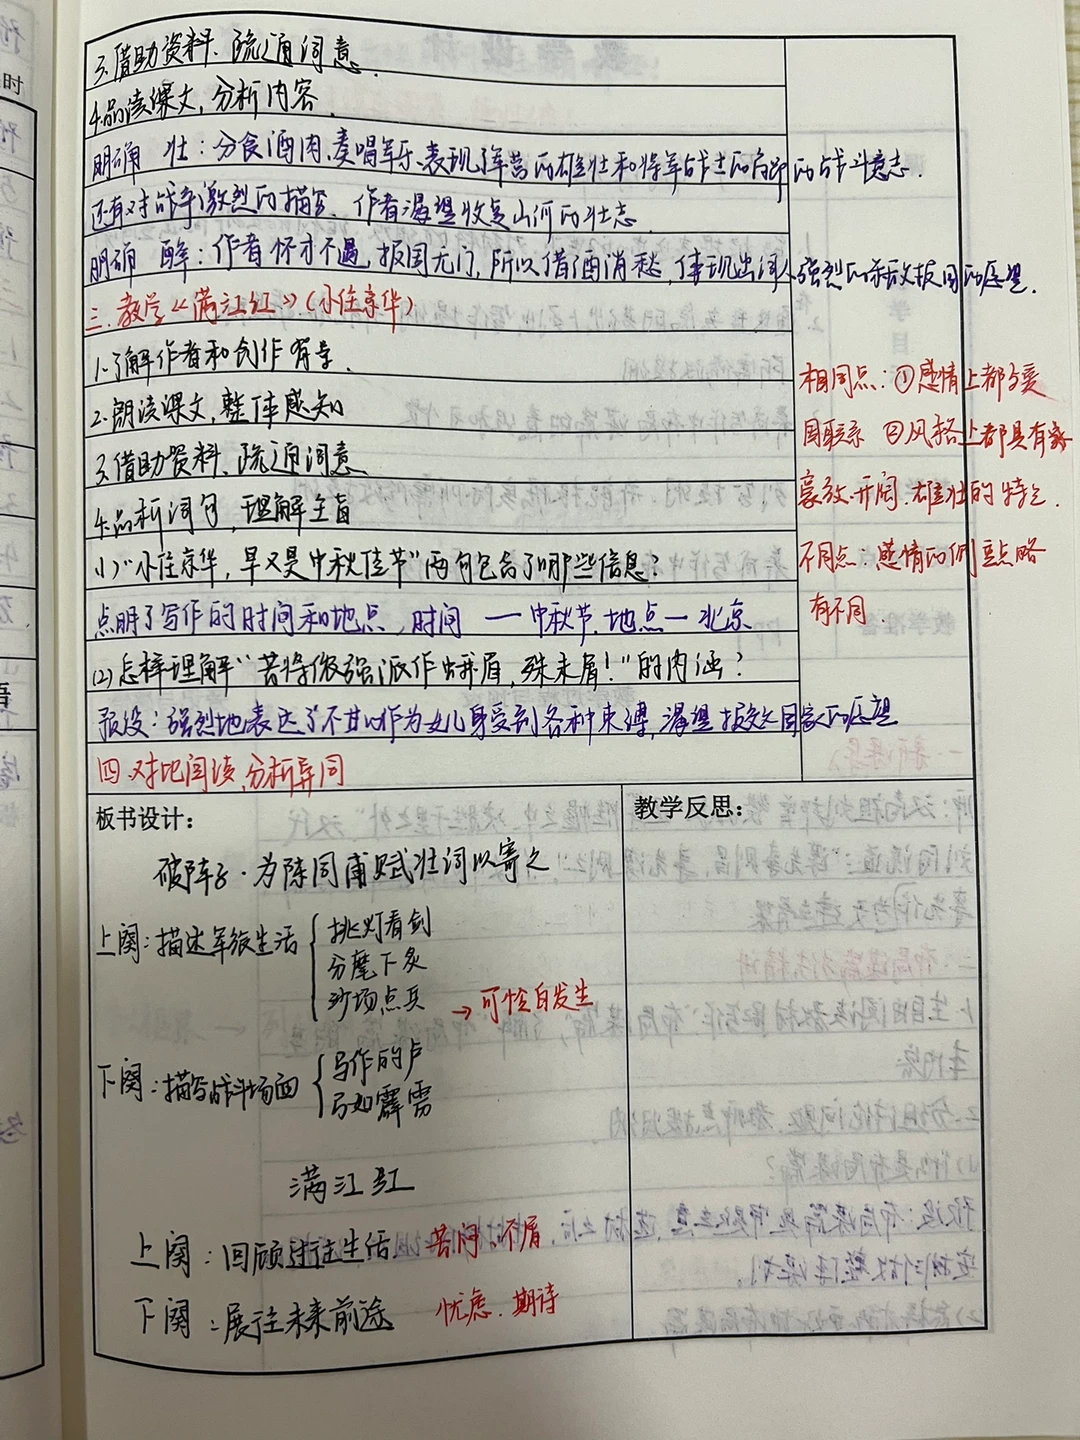 3.借助资料、疏通词意.
4.品读课文,分析内容.
明确 壮:分食酒肉、奏唱军乐、表现了军营的雄壮和将军战士的高昂的战斗意志.
还有对战争激烈的描写、作者渴望收复山河的壮志.
明确 醉:作者怀才不遇,报国无门,所以借酒消愁,体现出词人强烈的杀敌报国的愿望.
三.教学《满江红》(小住京华)
1.了解作者和创作背景.
2.朗读课文,整体感知
3.借助资料、疏通词意
4.品析词句,理解主旨
(1)“小住京华,早又是中秋佳节”两句包含了哪些信息?
点明了写作的时间和地点,时间 — 中秋节,地点 — 北京
(2)怎样理解“苦将侬强派作蛾眉,殊未屑!”的内涵?
预设:强烈地表达了不甘以作为女儿身受到各种束缚,渴望报效国家的愿望
四.对比阅读,分析异同
相同点:①感情上都与爱
国联系 ②风格上都具有豪
豪放.开阔.雄壮的特之.
不同点:感情的侧重点略
有不同.
板书设计:
破阵子·为陈同甫赋壮词以寄之
上阕:描述军旅生活
挑灯看剑
分麾下炙
沙场点兵
→可怜白发生
下阕:描写战斗场面
马作的卢
弓如霹雳
满江红
上阕:回顾过往生活 苦闷、不屑
下阕:展望未来前途 忧虑.期待
教学反思:
时